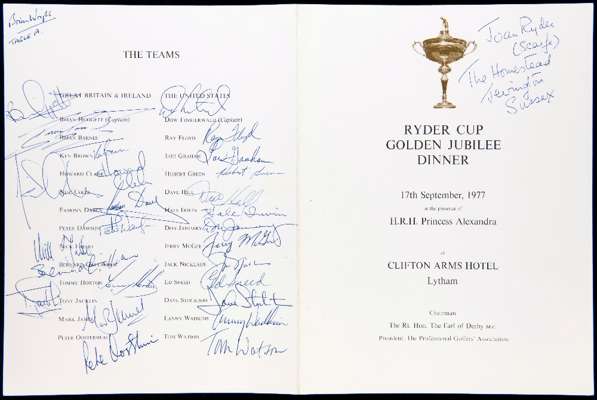 Brian Wright
TABLE A.
THE TEAMS
GREAT BRITAIN & IRELAND
BRIAN HUGGETT (Captain)
BRIAN BARNES
KEN BROWN
HOWARD CLARK
NEIL COLES
EAMONN DARCY
PETER DAWSON
NICK FALDO
BERNARD GALLACHER
TOMMY HORTON
TONY JACKLIN
MARK JAMES
PETER OOSTERHUIS
THE UNITED STATES
DOW FINSTERWALD (Captain)
RAY FLOYD
LOU GRAHAM
HUBERT GREEN
DAVE HILL
HALE IRWIN
DON JANUARY
JERRY McGEE
JACK NICKLAUS
ED SNEED
DAVE STOCKTON
LANNY WADKINS
TOM WATSON
Ray Floyd
Lou Graham
Hubert Green
Dave Hill
Hale Irwin
Don January
Jerry McGee
Ed Sneed
Dave Stockton
Lanny Wadkins
Tom Watson
Mark James
Pete Oosterhuis
Joan Ryder
(Scarfe)
The Homestead
Jevington
Sussex
RYDER CUP
GOLDEN JUBILEE
DINNER
17th September, 1977
in the presence of
H.R.H. Princess Alexandra
at
CLIFTON ARMS HOTEL
Lytham
Chairman
The Rt. Hon. The Earl of Derby MC
President, The Professional Golfers' Association